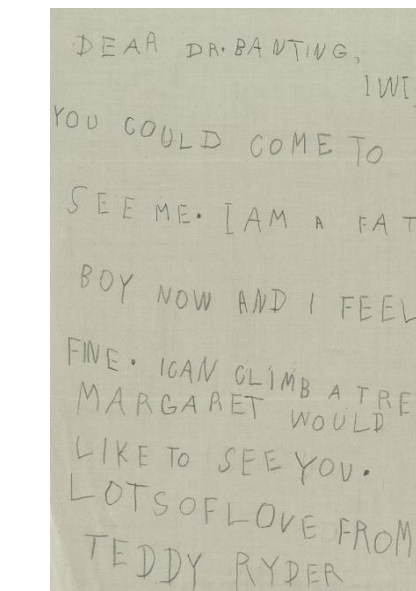 DEAR DR. BANTING,
I WI
YOU COULD COME TO
SEE ME. I AM A FAT
BOY NOW AND I FEEL
FINE. ICAN CLIMB A TRE
MARGARET WOULD
LIKE TO SEE YOU.
LOTSOFLOVE FROM
TEDDY RYDER